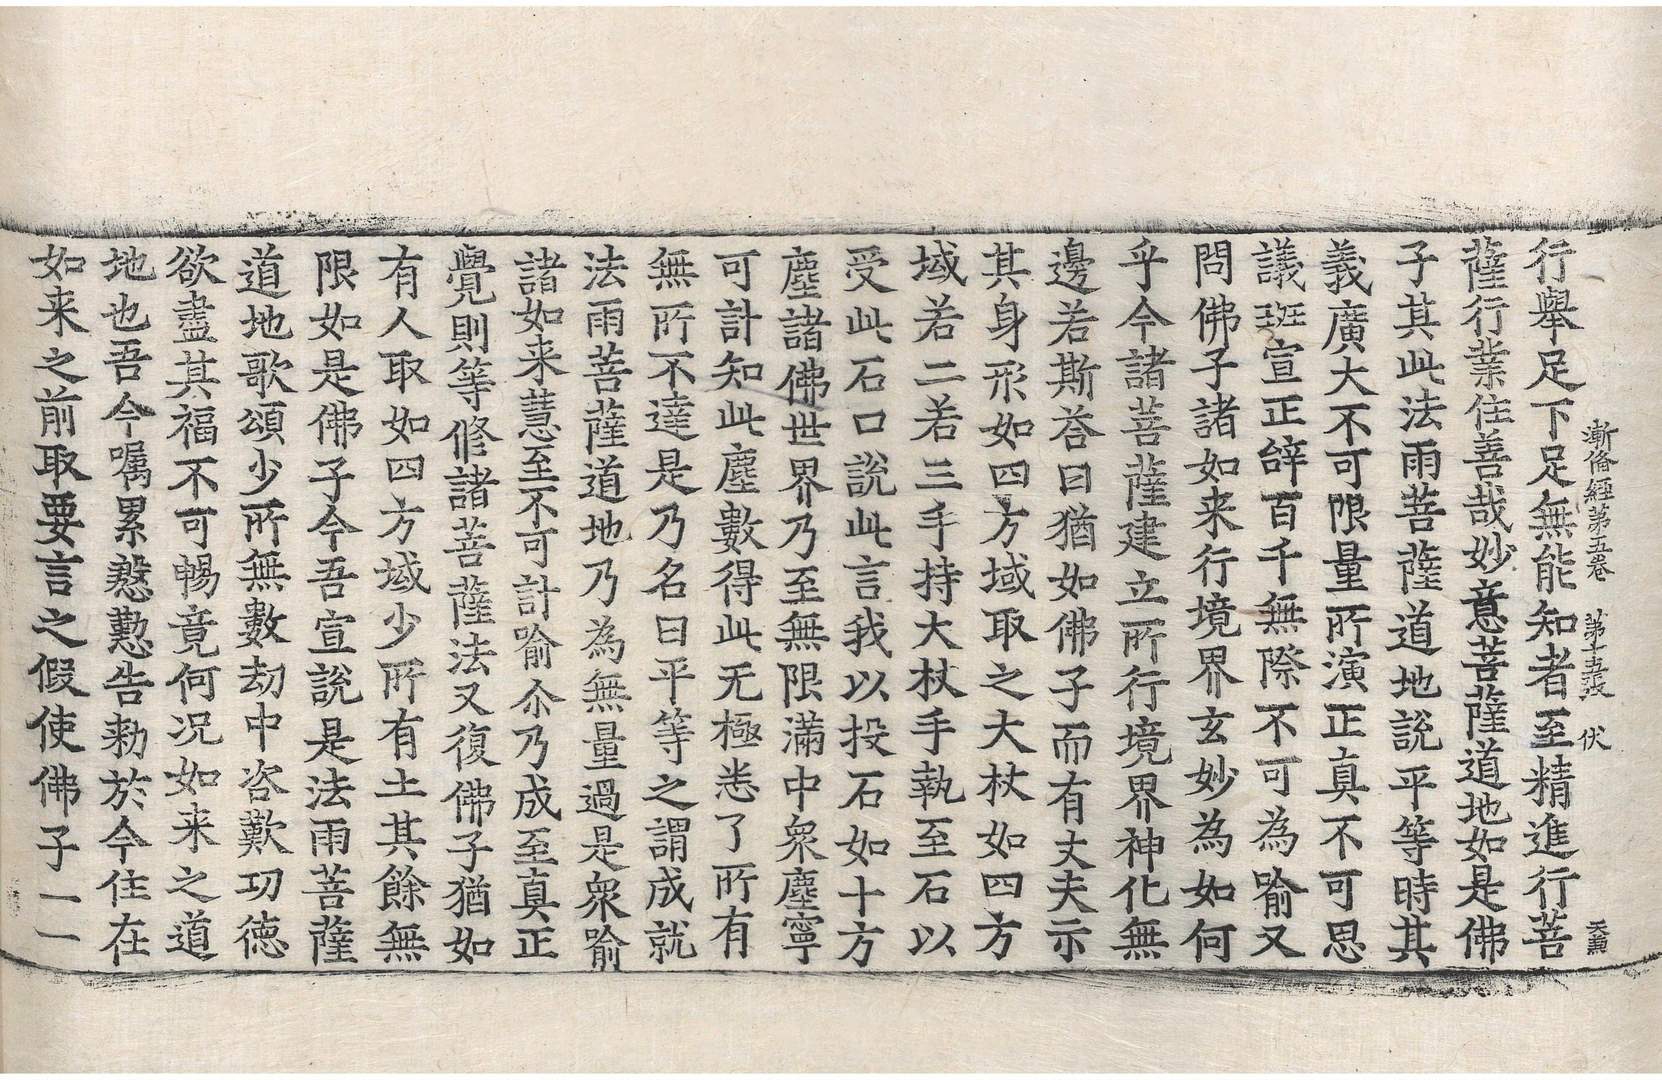 漸俻經第五卷 第十五張 伏 天勳
行舉足下足無能知者至精進行菩
薩行業住善哉妙意菩薩道地如是佛
子其此法雨菩薩道地說平等時其
義廣大不可限量所演正真不可思
議班宣正辝百千無際不可為喻又
問佛子諸如来行境界玄妙為如何
乎今諸菩薩建立所行境界神化無
邊若斯荅曰猶如佛子而有丈夫示
其身形如四方域取之大杖如四方
域若二若三手持大杖手執至石以
受此石口說此言我以投石如十方
塵諸佛世界乃至無限滿中眾塵寧
可計知此塵數得此无極悉了所有
無所不達是乃名曰平等之謂成就
法雨菩薩道地乃為無量過是眾喻
諸如来慧至不可計喻尒乃成至真正
覺則等修諸菩薩法又復佛子猶如
有人取如四方域少所有土其餘無
限如是佛子今吾宣說是法雨菩薩
道地歌頌少所無數劫中咨歎功德
欲盡其福不可暢竟何况如来之道
地也吾今囑累慇懃告勑於今住在
如来之前取要言之假使佛子一一